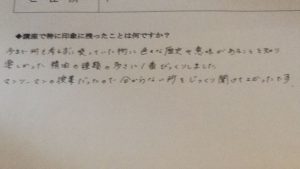 ◆講座で特に印象に残ったことは何ですか？
今まで何も考えずに使っていた物に色々な歴史や意味があることを知り
楽しかった 種類の多さに1番びっくりしました
マンツーマンの授業だったので分からない所をじっくり聞けてよかったです。